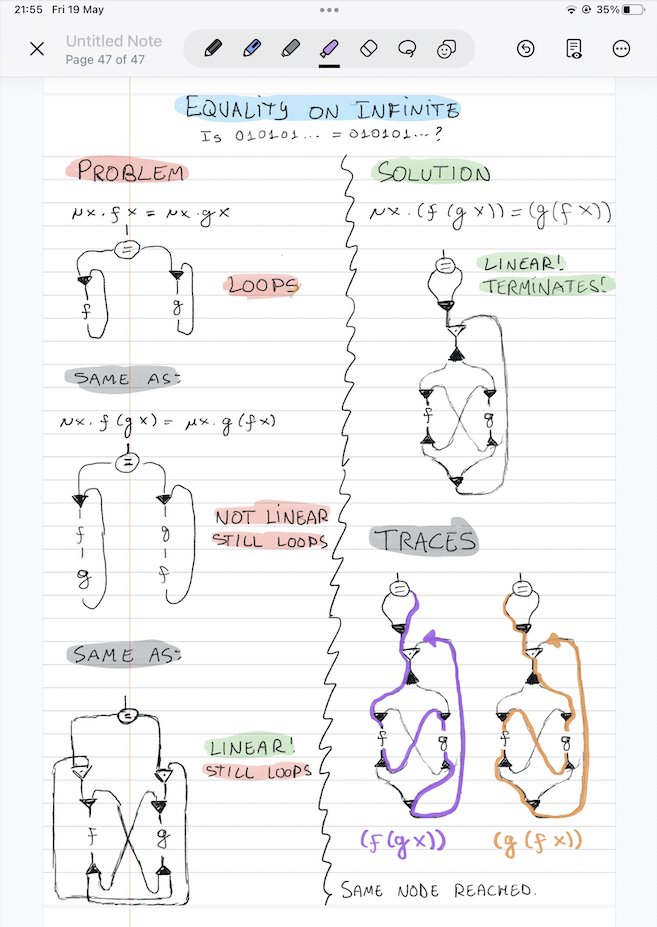 21:55 Fri 19 May
35%
Untitled Note
Page 47 of 47
EQUALITY ON INFINITE
Is 010101... = 010101...?
PROBLEM
μx. f x = μx. g x
=
f g
LOOPS
SAME AS:
μx. f (g x) = μx. g (f x)
=
f g
g f
NOT LINEAR
STILL LOOPS
SAME AS:
=
f g
LINEAR!
STILL LOOPS
SOLUTION
μx. (f (g x)) = (g (f x))
=
LINEAR!
TERMINATES!
f g
TRACES
= =
f g f g
(f (g x)) (g (f x))
SAME NODE REACHED.